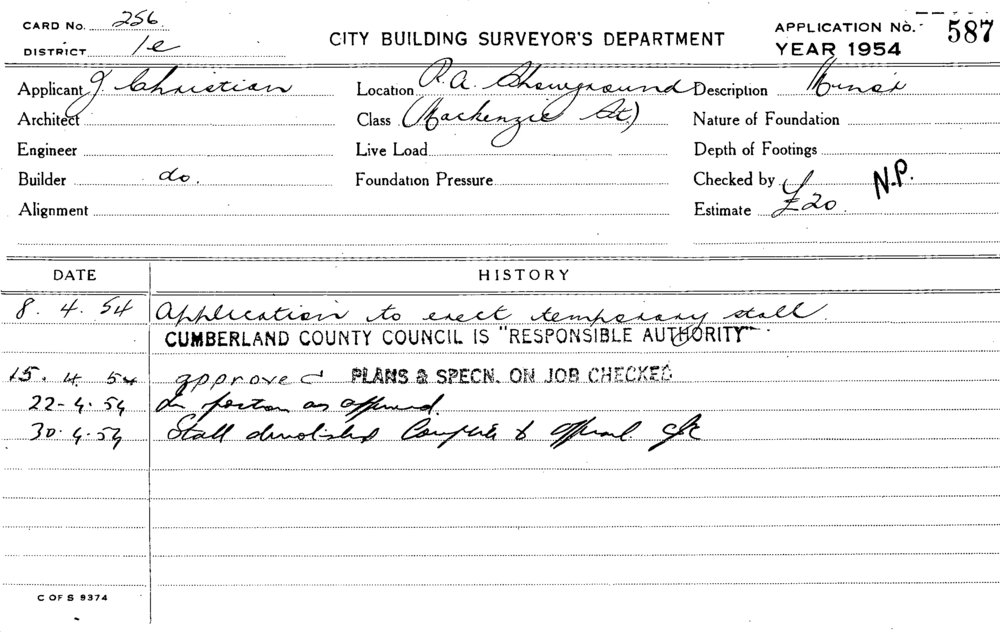 CARD NO. 256.
DISTRICT 1e
CITY BUILDING SURVEYOR'S DEPARTMENT
APPLICATION NO. 587
YEAR 1954
Applicant J Christian
Location R.A. Showground
Description Minor
Architect
Class (Mackenzie St.)
Nature of Foundation
Engineer
Live Load
Depth of Footings
Builder do.
Foundation Pressure
Checked by N.P.
Alignment
Estimate £20.
DATE HISTORY
8. 4. 54 Application to erect temporary stall.
CUMBERLAND COUNTY COUNCIL IS "RESPONSIBLE AUTHORITY"
15. 4. 54 approved PLANS & SPECN. ON JOB CHECKED
22-4-54 In position as approved.
30-4-54 Stall demolished Complete to approval
C OF S 9374